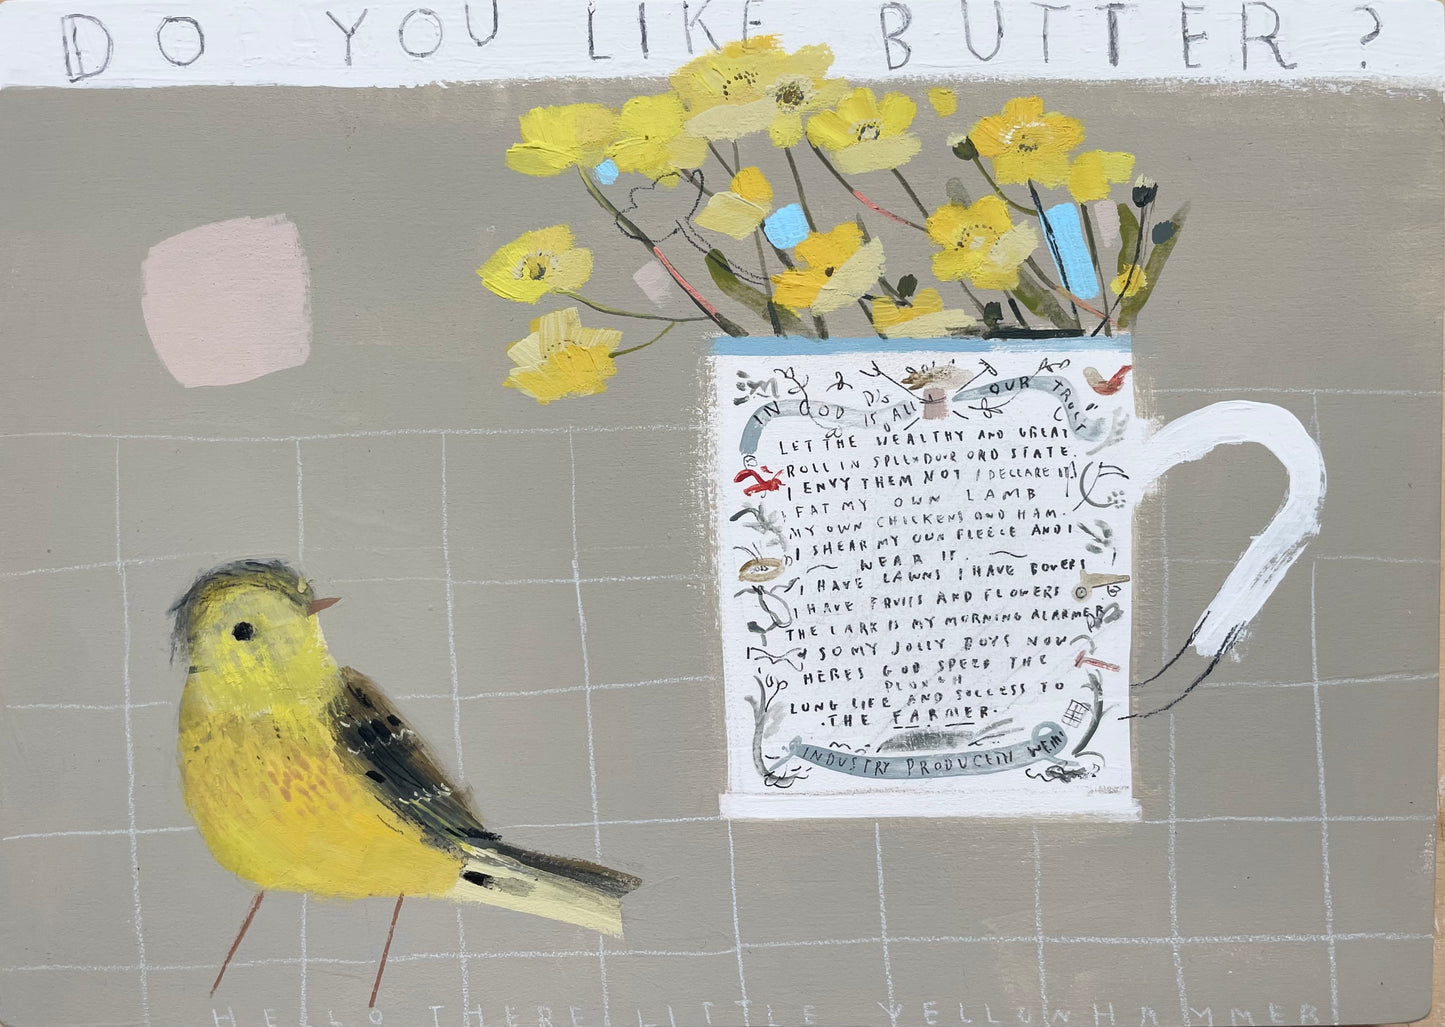 DO YOU LIKE BUTTER?
IN GOD IS ALL OUR TRUST
LET THE WEALTHY AND GREAT
ROLL IN SPLENDOUR AND STATE.
I ENVY THEM NOT I DECLARE IT
I EAT MY OWN LAMB
MY OWN CHICKENS AND HAM.
I SHEAR MY OWN FLEECE AND I
WEAR IT.
I HAVE LAWNS I HAVE BOWERS
I HAVE FRUITS AND FLOWERS
THE LARK IS MY MORNING ALARMER
SO MY JOLLY BOYS NOW
HERES GOD SPEED THE
PLOUGH
LONG LIFE AND SUCCESS TO
·THE FARMER·
INDUSTRY PRODUCETH WEM
HELLO THERE LITTLE YELLOWHAMMER